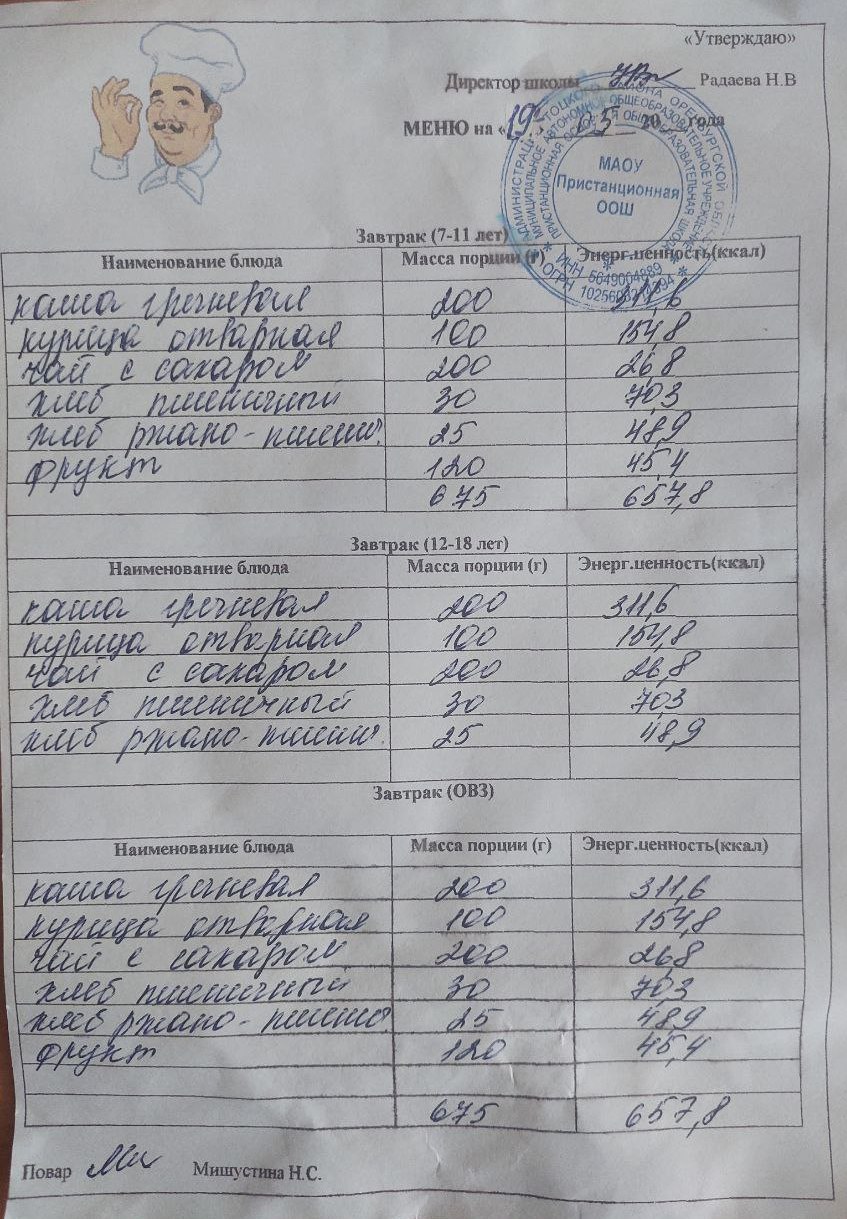 «Утверждаю»
Директор школы Радаева Н.В
МЕНЮ на «19» 05 20 года
АДМИНИСТРАЦ РАЙОНА ОРЕНБУРГСКОЙ ОБЛ
МУНИЦИПАЛЬНОЕ АВТОНОМНОЕ ОБЩЕОБРАЗОВАТЕЛЬНОЕ УЧРЕЖДЕНИЕ
ПРИСТАНЦИОННАЯ ОБЩЕОБРАЗОВАТЕЛЬНАЯ ШКОЛА
МАОУ
Пристанционная
ООШ
ИНН 5649004889
ОГРН
Завтрак (7-11 лет)
Наименование блюда Масса порции (г) Энерг.ценность(ккал)
каша гречневая 200 311,6
курица отварная 100 154,8
чай с сахаром 200 26,8
хлеб пшеничный 30 70,3
хлеб ржано-пшенич. 25 48,9
фрукт 120 45,4
675 657,8
Завтрак (12-18 лет)
Наименование блюда Масса порции (г) Энерг.ценность(ккал)
каша гречневая 200 311,6
курица отварная 100 154,8
чай с сахаром 200 26,8
хлеб пшеничный 30 70,3
хлеб ржано-пшенич. 25 48,9
Завтрак (ОВЗ)
Наименование блюда Масса порции (г) Энерг.ценность(ккал)
каша гречневая 200 311,6
курица отварная 100 154,8
чай с сахаром 200 26,8
хлеб пшеничный 30 70,3
хлеб ржано-пшенич. 25 48,9
фрукт 120 45,4
675 657,8
Повар Мишустина Н.С.